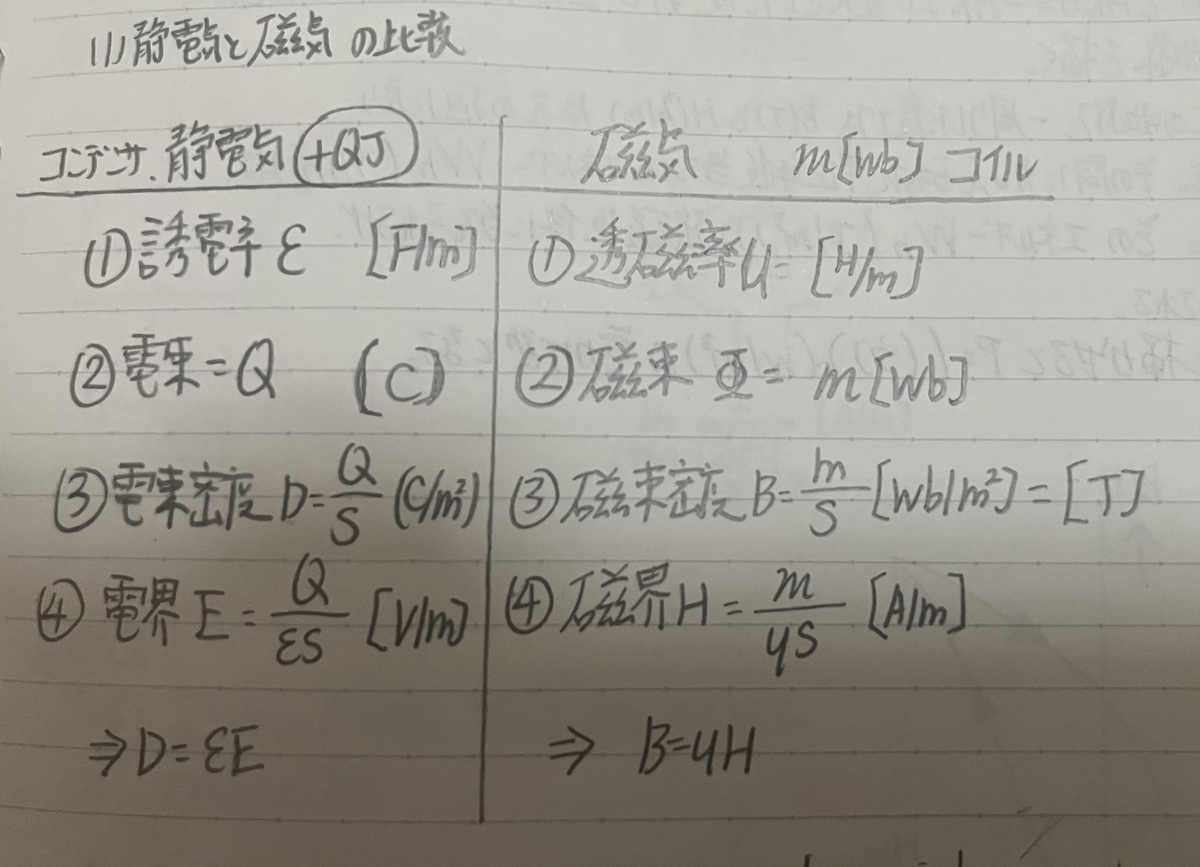 (1)静電気と磁気の比較
コンデンサ.静電気 +QJ
磁気 m[Wb] コイル
①誘電率 ε [F/m]
①透磁率μ= [H/m]
②電束=Q [C]
②磁束 Φ= m[Wb]
③電束密度 D=Q/S (C/m²)
③磁束密度 B=m/S [Wb/m²]=[J]
④電界 E=Q/εS [V/m]
④磁界H=m/μS [A/m]
⇒D=εE
⇒ B=μH